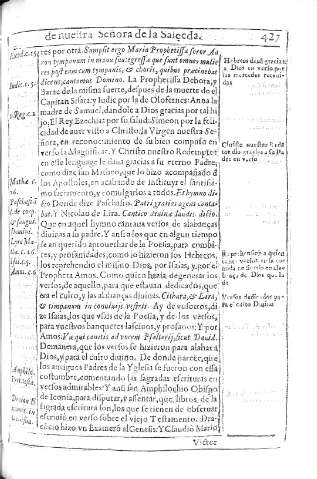 de nuestra Señora de la Salceda. 427
res por otra. Sumpsit ergo Maria Prophetissa soror Aa
ron tympanum in manu sua: egressæque sunt omnes mulie
res post eam cum tympanis, & choris, quibus præcinebat
dicens, cantemus Domino. La Prophetissa Debora, y
Barac de la misma suerte, despues de la muerte de el
Capitan Sisara: y Iudic por la de Olofernes: Anna la
madre de Samuel, dandole a Dios gracias por tal hi
jo: El Rey Ezechias por su salud: Simeon por la felici
dad de auer visto a Christo: la Virgen nuestra Se
ñora, en reconocimiento de su bien compuso en
verso la Magnificat. Y Christo nuestro Redemptor
en este lenguage le daua gracias a su eterno Padre,
como dize san Matheo, que lo hizo acompañado de
los Apostoles, en acabando de instituyr el santissi
mo sacramento, y comulgarlos a todos. Et hymno di
cto Donde dize Paschasio. Patri gratias agens canta
bat. Y Nicolao de Lira. Cantico diuinæ laudis dicto.
Que en aquel hymno cantaua versos de alabanças
diuinas a su padre. Y ansi a los que en algun tiempo
se an querido aprouechar de la Poesia, para combi
tes, y profanidades, como lo hizieron los Hebreos,
los reprehendio el mismo Dios, por Isaias, y por el
Propheta Amos. Como quien hazia degenerar los
versos, de aquello, para que estauan dedicados, que
era el culto, y las alabanças diuinas. Cithara, & Lira,
& timpanum in conuiuis vestris. Ay de vosotros, di
ze Isaias, los que vsais de la Poesia, y de los versos,
para vuestros banquetes lasciuos, y profanos: Y por
Amos. Væ qui canitis ad vocem Psalterij, sicut Dauid.
Demanera, que los versos se hizieron para alabar a
Dios, y para el culto diuino. De donde parece, que
los antiguos Padres de la Yglesia se fueron con essa
costumbre, comentando las sagradas escrituras en
versos admirables: Y ansi san Amphilochio Obispo
de Iconia, para disputar, y assentar, que libros de la
sagrada escritura son, los que se tienen de obseruar
escriuio en verso sobre el viejo Testamento. Dra
concio hizo vn Exameró al Genesis: Y Claudio Mario
Victor
Iudic. c. 5.
1. Reg. c. 2.
Math. c.
26.
Amos. c. 6
Hebreos dauā gracias
a Dios en verso por
las mercedes recebi
das
Versos dedicados pa
ra el culto Diuino